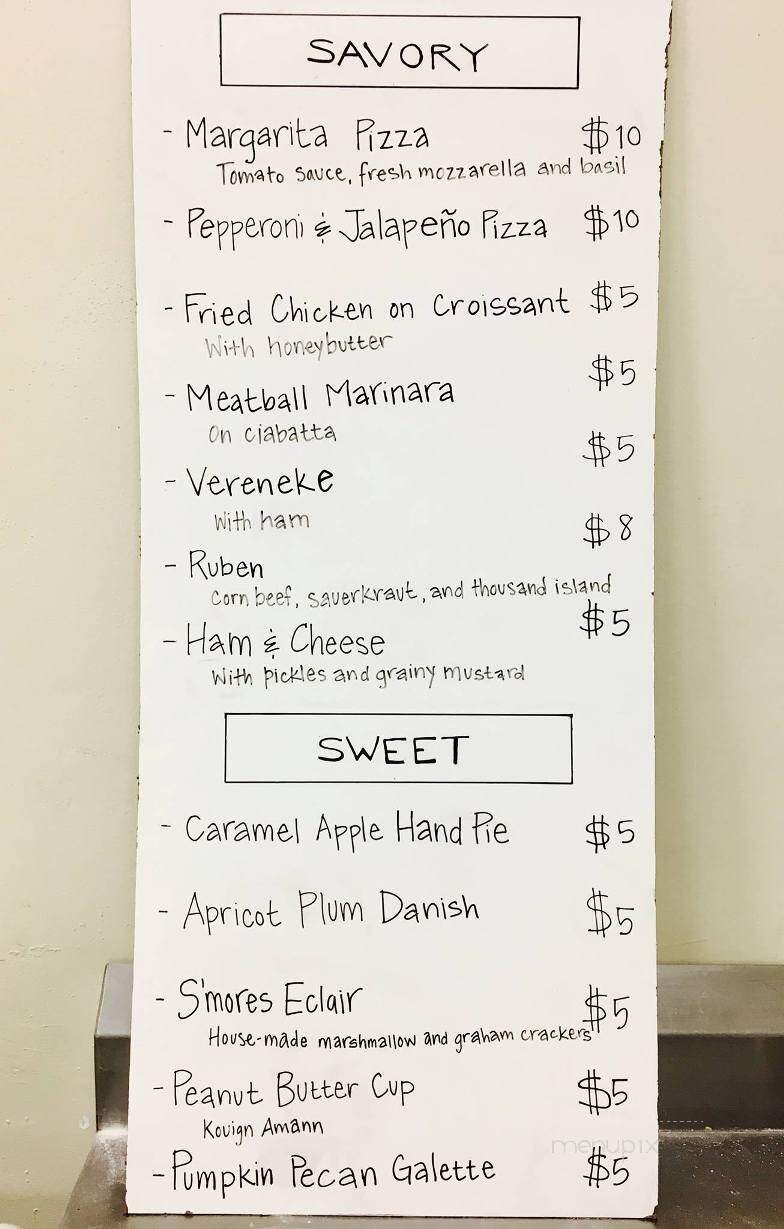 SAVORY
- Margarita Pizza $10
Tomato sauce, fresh mozzarella and basil
- Pepperoni & Jalapeño Pizza $10
- Fried Chicken on Croissant $5
With honeybutter
$5
- Meatball Marinara
On ciabatta
$5
- Vereneke
With ham
$8
- Ruben
Corn beef, sauerkraut, and thousand island
$5
- Ham & Cheese
With pickles and grainy mustard
SWEET
- Caramel Apple Hand Pie $5
- Apricot Plum Danish $5
- S'mores Eclair $5
House-made marshmallow and graham crackers
- Peanut Butter Cup $5
Kouign Amann
menupix
- Pumpkin Pecan Galette $5